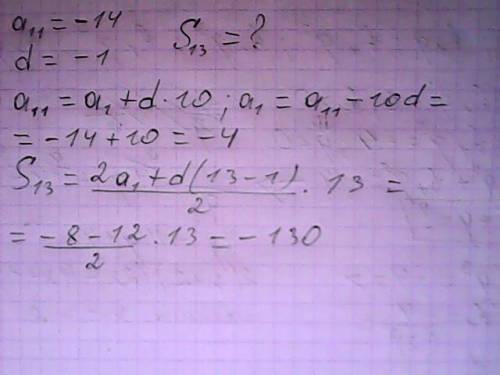 a₁₁ = -14    S₁₃ = ?
d = -1
a₁₁ = a₁ + d · 10 ; a₁ = a₁₁ - 10d =
= -14 + 10 = -4
S₁₃ = (2a₁ + d(13 - 1))/2 · 13 =
= (-8 - 12)/2 · 13 = -130